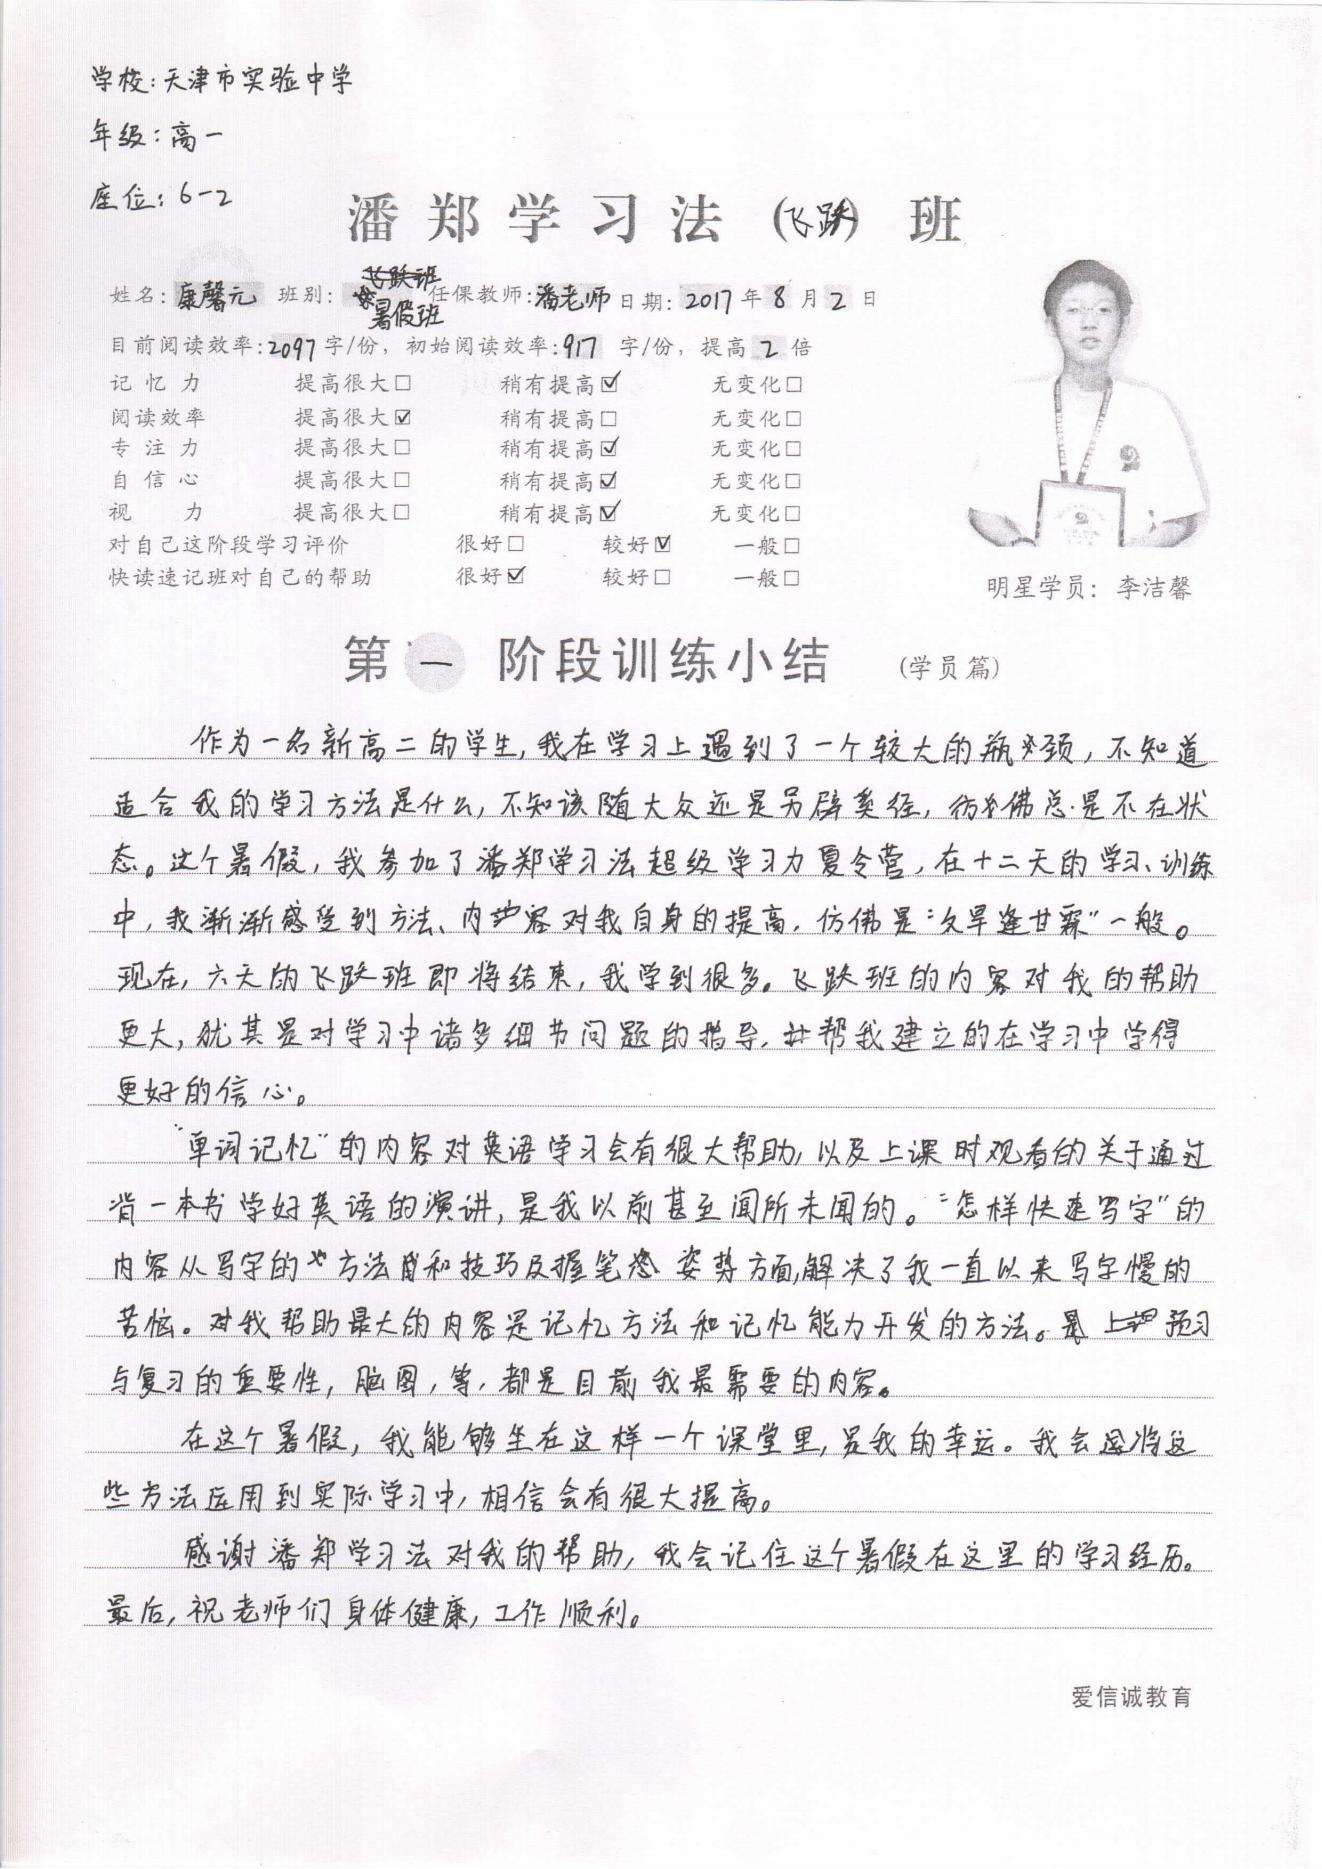 学校:天津市实验中学
年级:高一
座位:6-2
潘郑学习法(飞跃)班
姓名:康馨元 班别:暑假班 任保教师:潘老师 日期:2017年8月2日
目前阅读效率:2097字/份,初始阅读效率:917字/份,提高2倍
记忆力 提高很大□ 稍有提高☑ 无变化□
阅读效率 提高很大☑ 稍有提高□ 无变化□
专注力 提高很大□ 稍有提高☑ 无变化□
自信心 提高很大□ 稍有提高☑ 无变化□
视力 提高很大□ 稍有提高☑ 无变化□
对自己这阶段学习评价 很好□ 较好☑ 一般□
快读速记班对自己的帮助 很好☑ 较好□ 一般□
明星学员:李洁馨
第一阶段训练小结 (学员篇)
作为一名新高二的学生,我在学习上遇到了一个较大的瓶颈,不知道
适合我的学习方法是什么,不知该随大众还是另辟奚径,彷佛总是不在状
态。这个暑假,我参加了潘郑学习法超级学习力夏令营,在十二天的学习、训练
中,我渐渐感受到方法、内容对我自身的提高,仿佛是“久旱逢甘霖”一般。
现在,六天的飞跃班即将结束,我学到很多。飞跃班的内容对我的帮助
更大,犹其是对学习中诸多细节问题的指导,并帮我建立的在学习中学得
更好的信心。
“单词记忆”的内容对英语学习会有很大帮助,以及上课时观看的关于通过
背一本书学好英语的演讲,是我以前甚至闻所未闻的。“怎样快速写字”的
内容从写字的方法和技巧及握笔姿势方面,解决了我一直以来写字慢的
苦恼。对我帮助最大的内容是记忆方法和记忆能力开发的方法。预习
与复习的重要性,脑图,等,都是目前我最需要的内容。
在这个暑假,我能够坐在这样一个课堂里,是我的幸运。我会将这
些方法应用到实际学习中,相信会有很大提高。
感谢潘郑学习法对我的帮助,我会记住这个暑假在这里的学习经历。
最后,祝老师们身体健康,工作顺利。
爱信诚教育